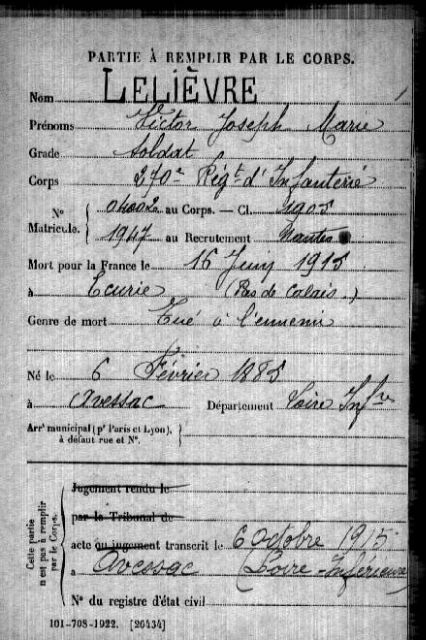 PARTIE À REMPLIR PAR LE CORPS.
Nom LELIÈVRE
Prénoms Victor Joseph Marie
Grade Soldat
Corps 270e Régt d'Infanterie
N° Matricule. 04002 au Corps. — Cl. 1905
1947 au Recrutement Nantes
Mort pour la France le 16 Juin 1915
à Ecurie (Pas de Calais.)
Genre de mort Tué à l'ennemi
Né le 6 Février 1885
à Avessac Département Loire Infre
Arrt municipal (pr Paris et Lyon),
à défaut rue et N°.
Cette partie n'est pas à remplir par le Corps.
Jugement rendu le
par le Tribunal de
acte ou jugement transcrit le 6 Octobre 1915
à Avessac (Loire-Inférieure)
N° du registre d'état civil
101-708-1922. [26434]